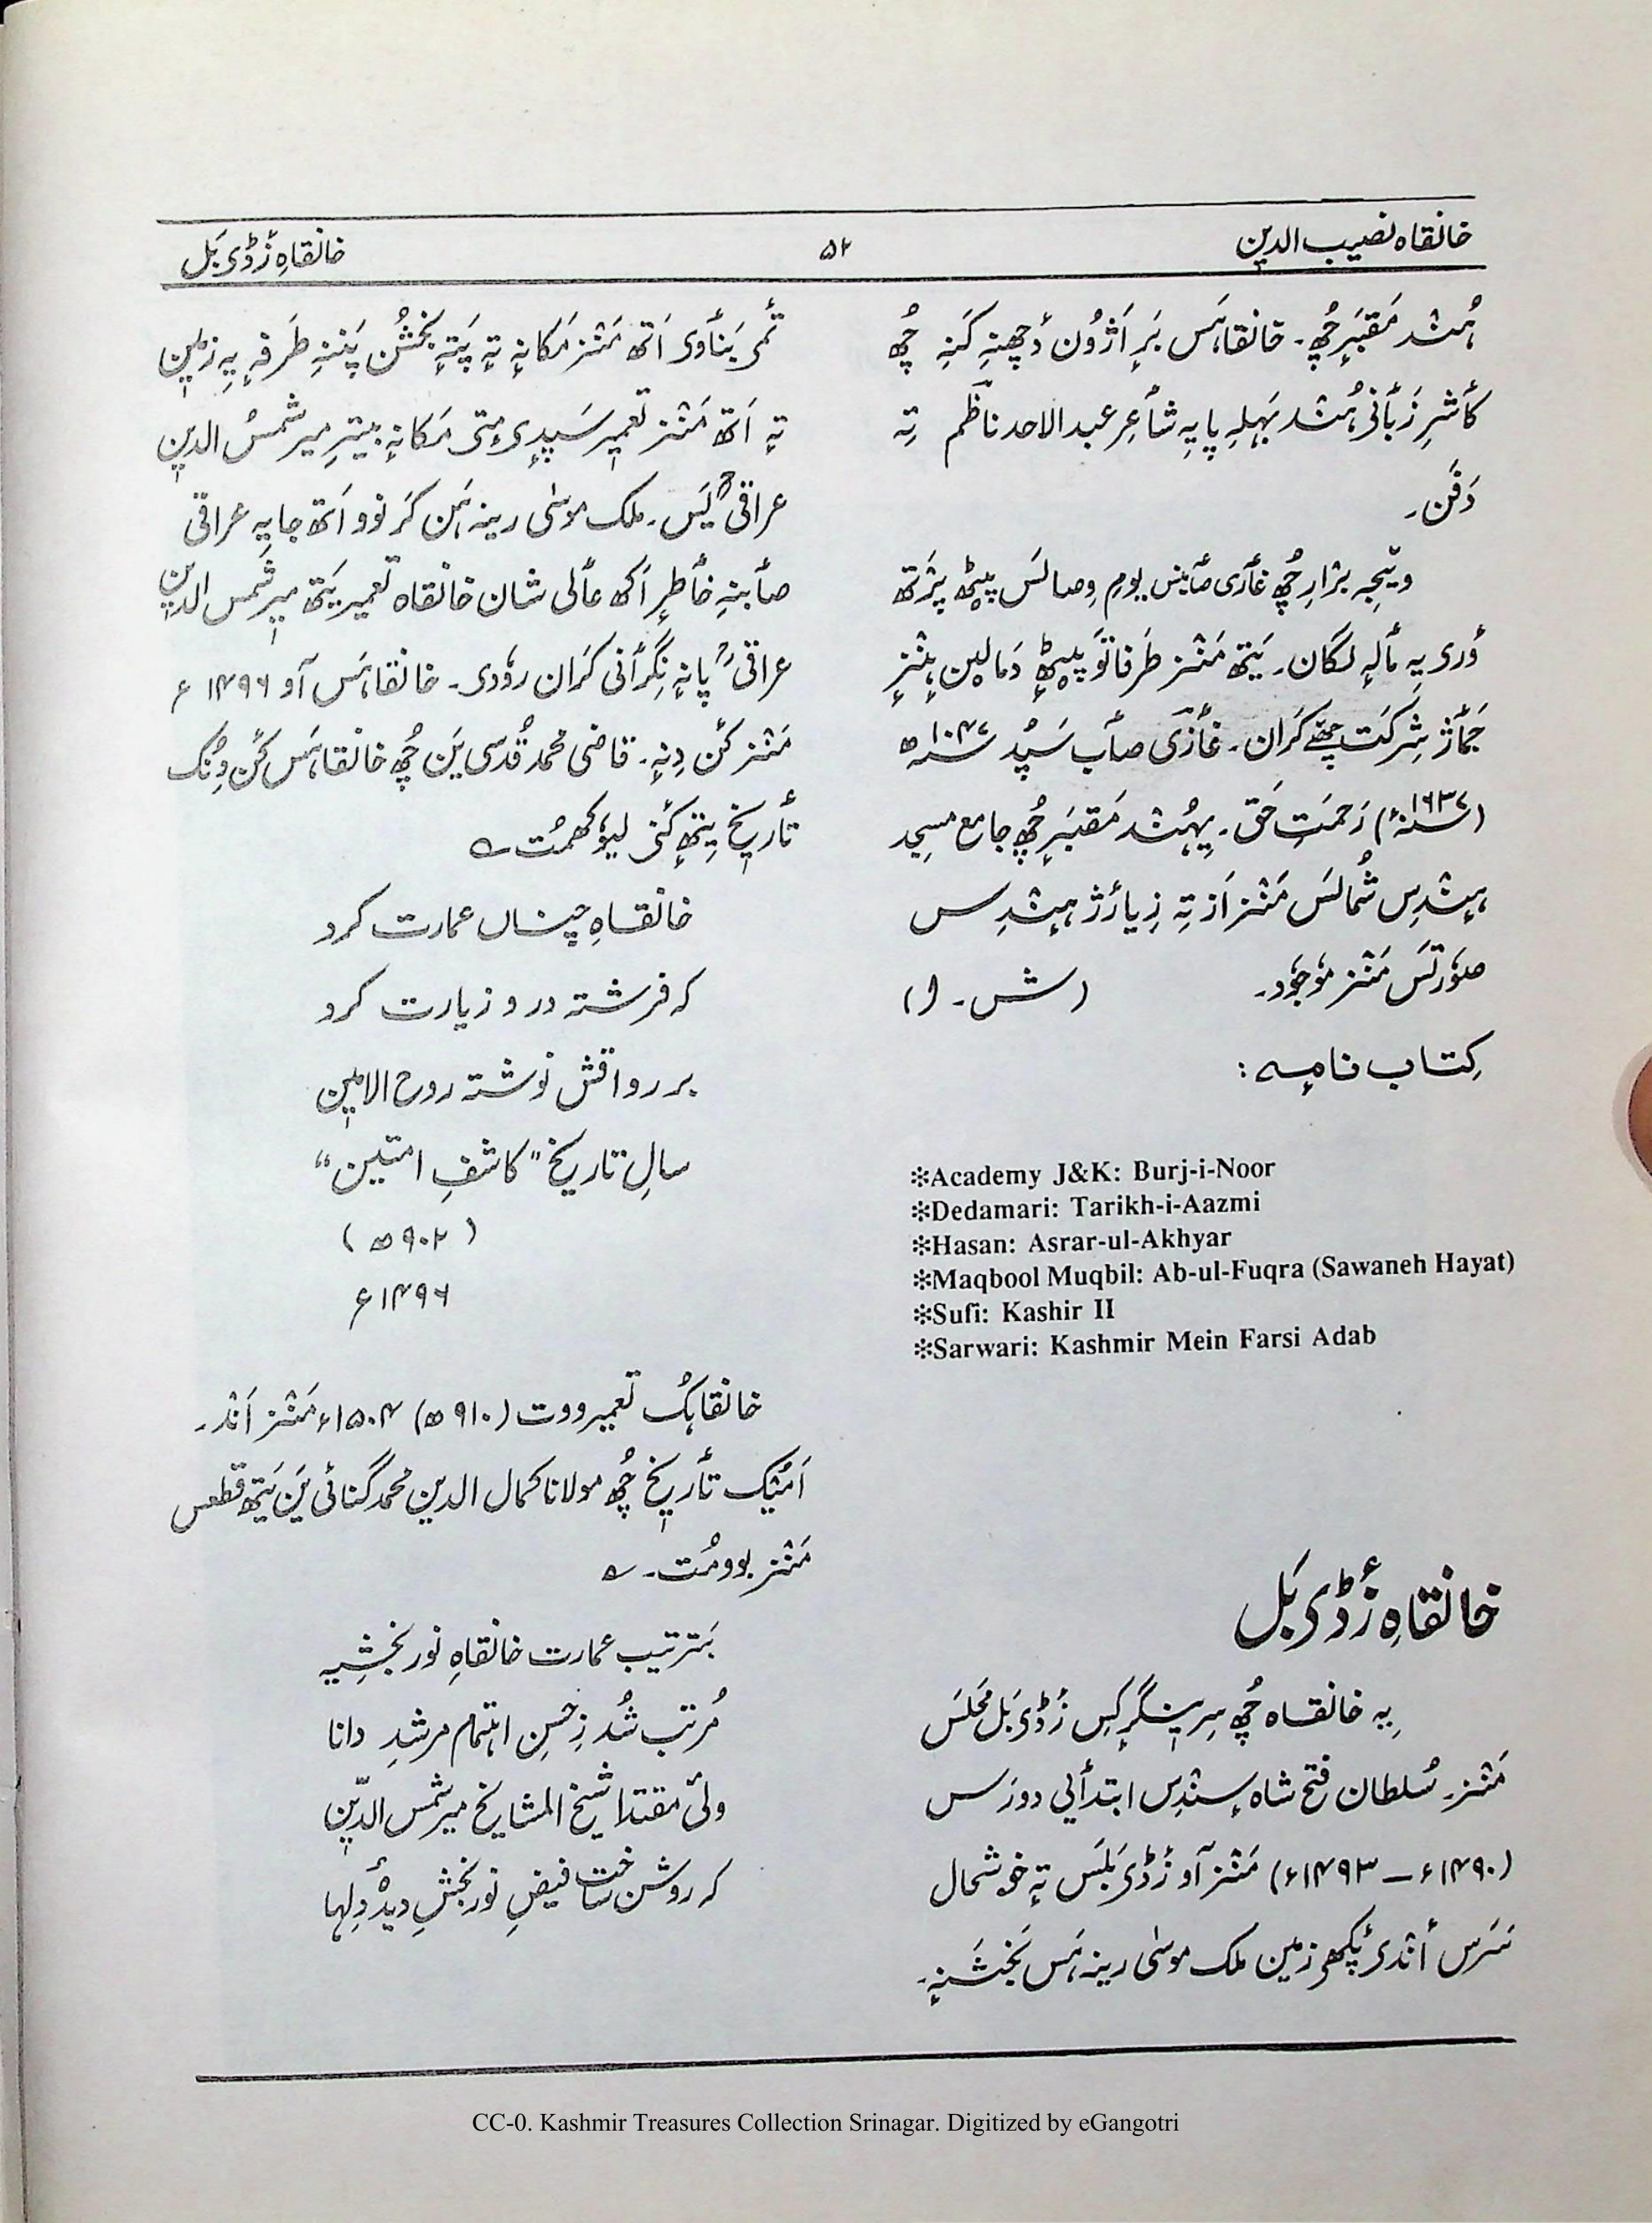 خانقاہ نصیب الدین
۵۲
خانقاہِ زٔڈی بَل
ہُنٛد مَقبَرٕ چھُ۔ خانقاہَس بَرِ اَژُون دٔچھنِہ کَنہِ چھُ
کأشرِ زَبأنی ہُنٛد بَہلِہ پایِہ شأعِر عبدالاحد ناظِم تِہ
دَفَن۔
وۄہرِ یہِ مألہٕ لگان۔ یَتھ مَنٛز طَرفاتَو پیٹھٕ دَمالہِن ہٕنٛزِ
جَمأژ شِرکَت چھے کَران۔ غأزی صأب سَپُد ۱۰۴۷ھ
(۱۶۳۷ء) رَحمَتِ حَق۔ یِہُنٛد مَقبَرٕ چھُ جامع مسجِد
ہِنٛدِس شُمالَس مَنٛز اَز تِہ زِیارٔژ ہِنٛدِس
صوٗرتَس مَنٛز موٗجوٗد۔ (ش۔ ا)
کِتاب نامہٕ :
❇Academy J&K: Burj-i-Noor
❇Dedamari: Tarikh-i-Aazmi
❇Hasan: Asrar-ul-Akhyar
❇Maqbool Muqbil: Ab-ul-Fuqra (Sawaneh Hayat)
❇Sufi: Kashir II
❇Sarwari: Kashmir Mein Farsi Adab
خانقاہِ زٔڈی بَل
یہِ خانقاہ چھُ سِرینگرٕکِس زٔڈی بَل مَحلَس
مَنٛز۔ سُلطان فتح شاہ سٕنٛدِس ابتدأیی دورَس
(۱۴۹۰ء – ۱۴۹۳ء) مَنٛز آو زٔڈی بَلَس تہٕ خوشحال
سَرَس أنٛدی پٔکھی زمین ملک موسٰی رینہ ہَس بَخشَنہٕ۔
تٔمی بَنأوی اَتھ مَنٛز مَکانہٕ تہٕ پَتہٕ بخشُن پَننہِ طَرفہٕ یہِ زمین
تہٕ اَتھ مَنٛز تعمیر سَپدی مٕتی مَکانہٕ بیترِ میر شمسُ الدین
عراقیؒ یَس۔ ملک موسٰی رینہ ہَن کَر نوو اَتھ جایہِ عراقی
صأبنہِ خأطرٕ اَکھ عألی شان خانقاہ تعمیر یَتھ میر شمس الدین
عراقیؒ پانہٕ نِگرأنی کَران روٗدی۔ خانقاہَس آو ۱۴۹۶ء
مَنٛز کٔن دِنہٕ۔ قاضی محمد قُدسی یَن چھُ خانقاہَس کٔن دِنُک
تأریخ یِتھٕ کٔنی لیوٗکھمُت ؎
خانقاہِ چناں عمارت کرد
کہ فرشتہ درو زیارت کرد
بر رواقش نوشتہ روح الامین
سالِ تاریخ "کاشفِ امتین"
(۹۰۲ھ)
۱۴۹۶ء
خانقاہُک تعمیر ووت (۹۱۰ھ) ۱۵۰۴ء مَنٛز اَنٛد۔
اَمیُک تأریخ چھُ مولانا کمال الدین محمد گنائی یَن یَتھ قطعس
مَنٛز بوومُت۔ ؎
بَترتیب عمارت خانقاہِ نور بخشِیہ
مُرتب شُد زِحسنِ اہتمام مرشدِ دانا
ولیٔ مقتدا شیخ المشایخ میر شمس الدّین
کہ روشن ساخت فیضِ نور بخشِ دیدۂ دِلہا
CC-0. Kashmir Treasures Collection Srinagar. Digitized by eGangotri